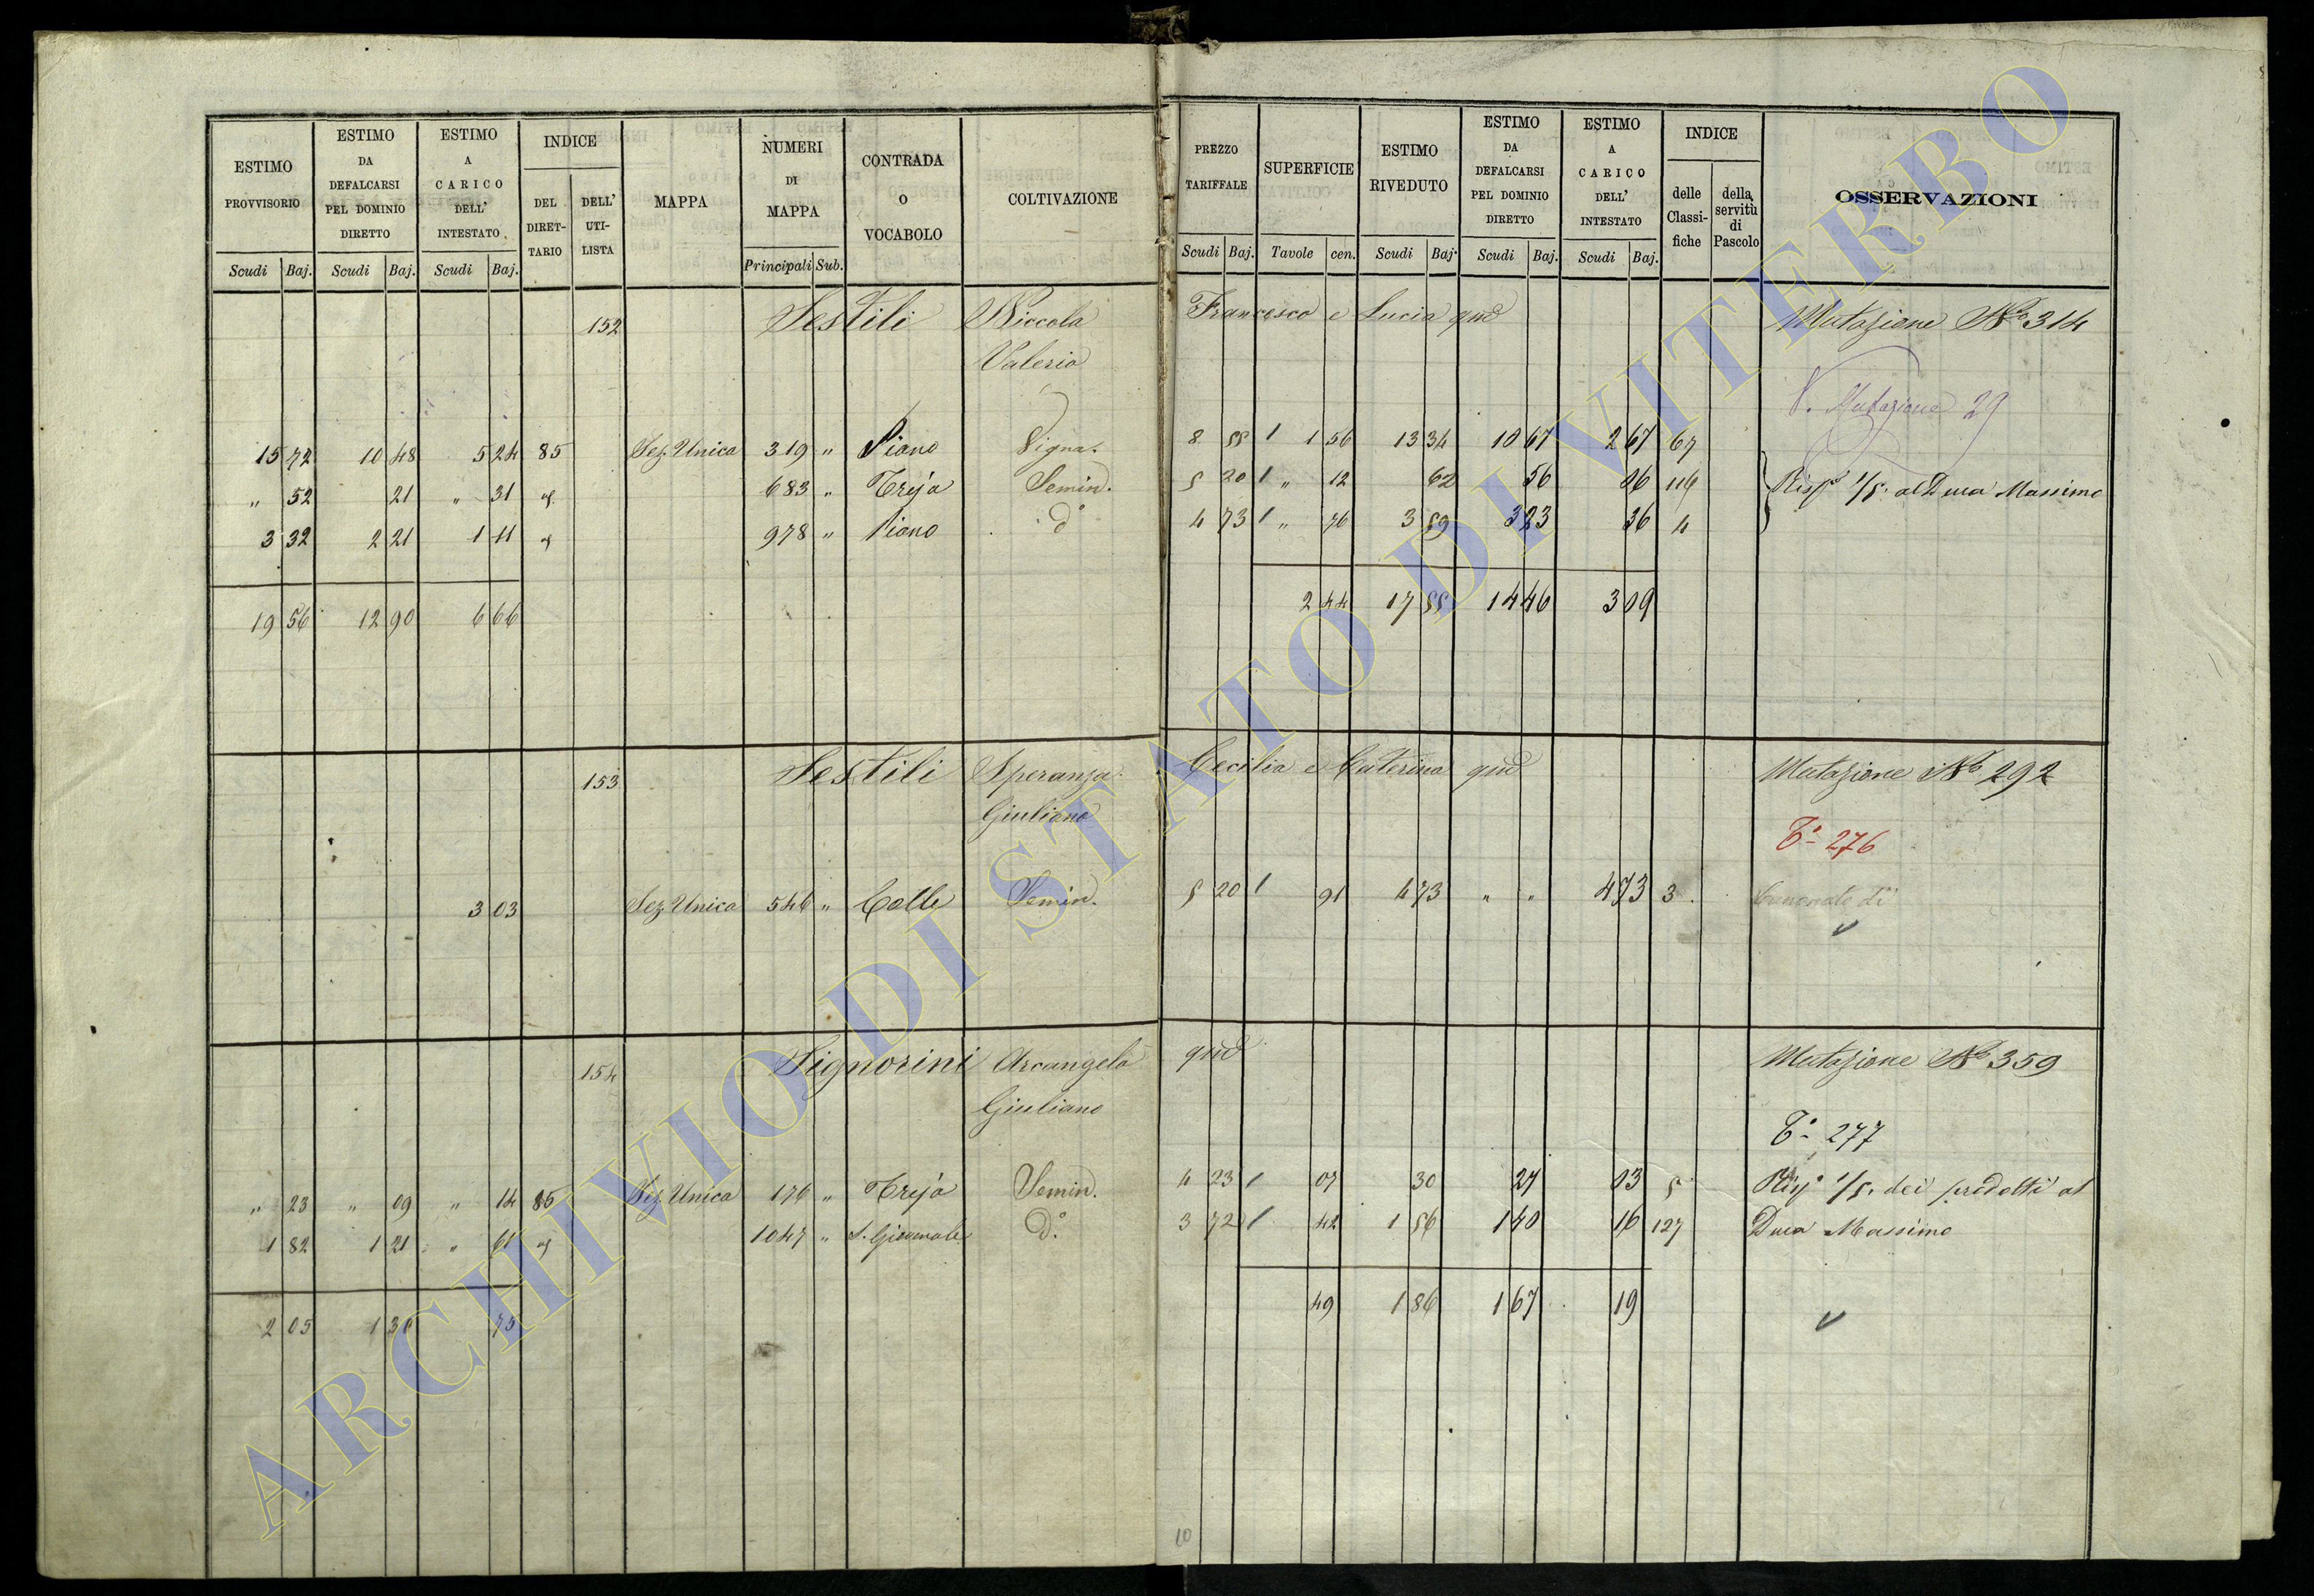 ESTIMO PROVVISORIO
ESTIMO DA DEFALCARSI PEL DOMINIO DIRETTO
ESTIMO A CARICO DELL' INTESTATO
INDICE
DEL DIRET-TARIO
DELL' UTI-LISTA
MAPPA
NUMERI DI MAPPA
CONTRADA O VOCABOLO
COLTIVAZIONE
PREZZO TARIFFALE
SUPERFICIE
ESTIMO RIVEDUTO
ESTIMO DA DEFALCARSI PEL DOMINIO DIRETTO
ESTIMO A CARICO DELL' INTESTATO
INDICE
delle Classi-fiche
della servitù di Pascolo
OSSERVAZIONI
Scudi Baj. Scudi Baj. Scudi Baj. Principali Sub. Scudi Baj. Tavole cen. Scudi Baj. Scudi Baj. Scudi Baj.
152 Sestili Niccola Francesco e Lucia qud Mutazione No 314
Valerio
V. Mutazione 29
15 72 10 48 5 24 85 Sez. Unica 319 " Piano Vigna. 8 55 1 1 56 13 34 10 67 2 67 67
" 52 21 " 31 683 " Treja Semin. 5 20 1 " 12 62 56 06 116 Rispe 1/5. al Duca Massimo
3 32 2 21 1 11 978 " Piano do 4 73 1 " 76 3 59 3 23 36 4
19 56 12 90 6 66 2 44 17 55 14 46 3 09
153 Sestili Speranza Cecilia e Caterina qud Mutazione No 292
Giuliano
To 276
3 03 Sez. Unica 546 " Colle Semin. 5 20 1 91 4 73 " " 4 73 3
154 Signorini Arcangelo qud Mutazione No 359
Giuliano
To 277
" 23 " 09 " 14 85 Sez. Unica 176 " Treja Semin. 4 23 1 07 30 27 03 5 1/5. dei prodotti al
1 82 1 21 " 61 1047 " S. Giovenale Do. 3 72 1 42 1 56 1 40 16 127 Duca Massimo
2 05 1 30 75 49 1 86 1 67 19
10
ARCHIVIO DI STATO DI VITERBO